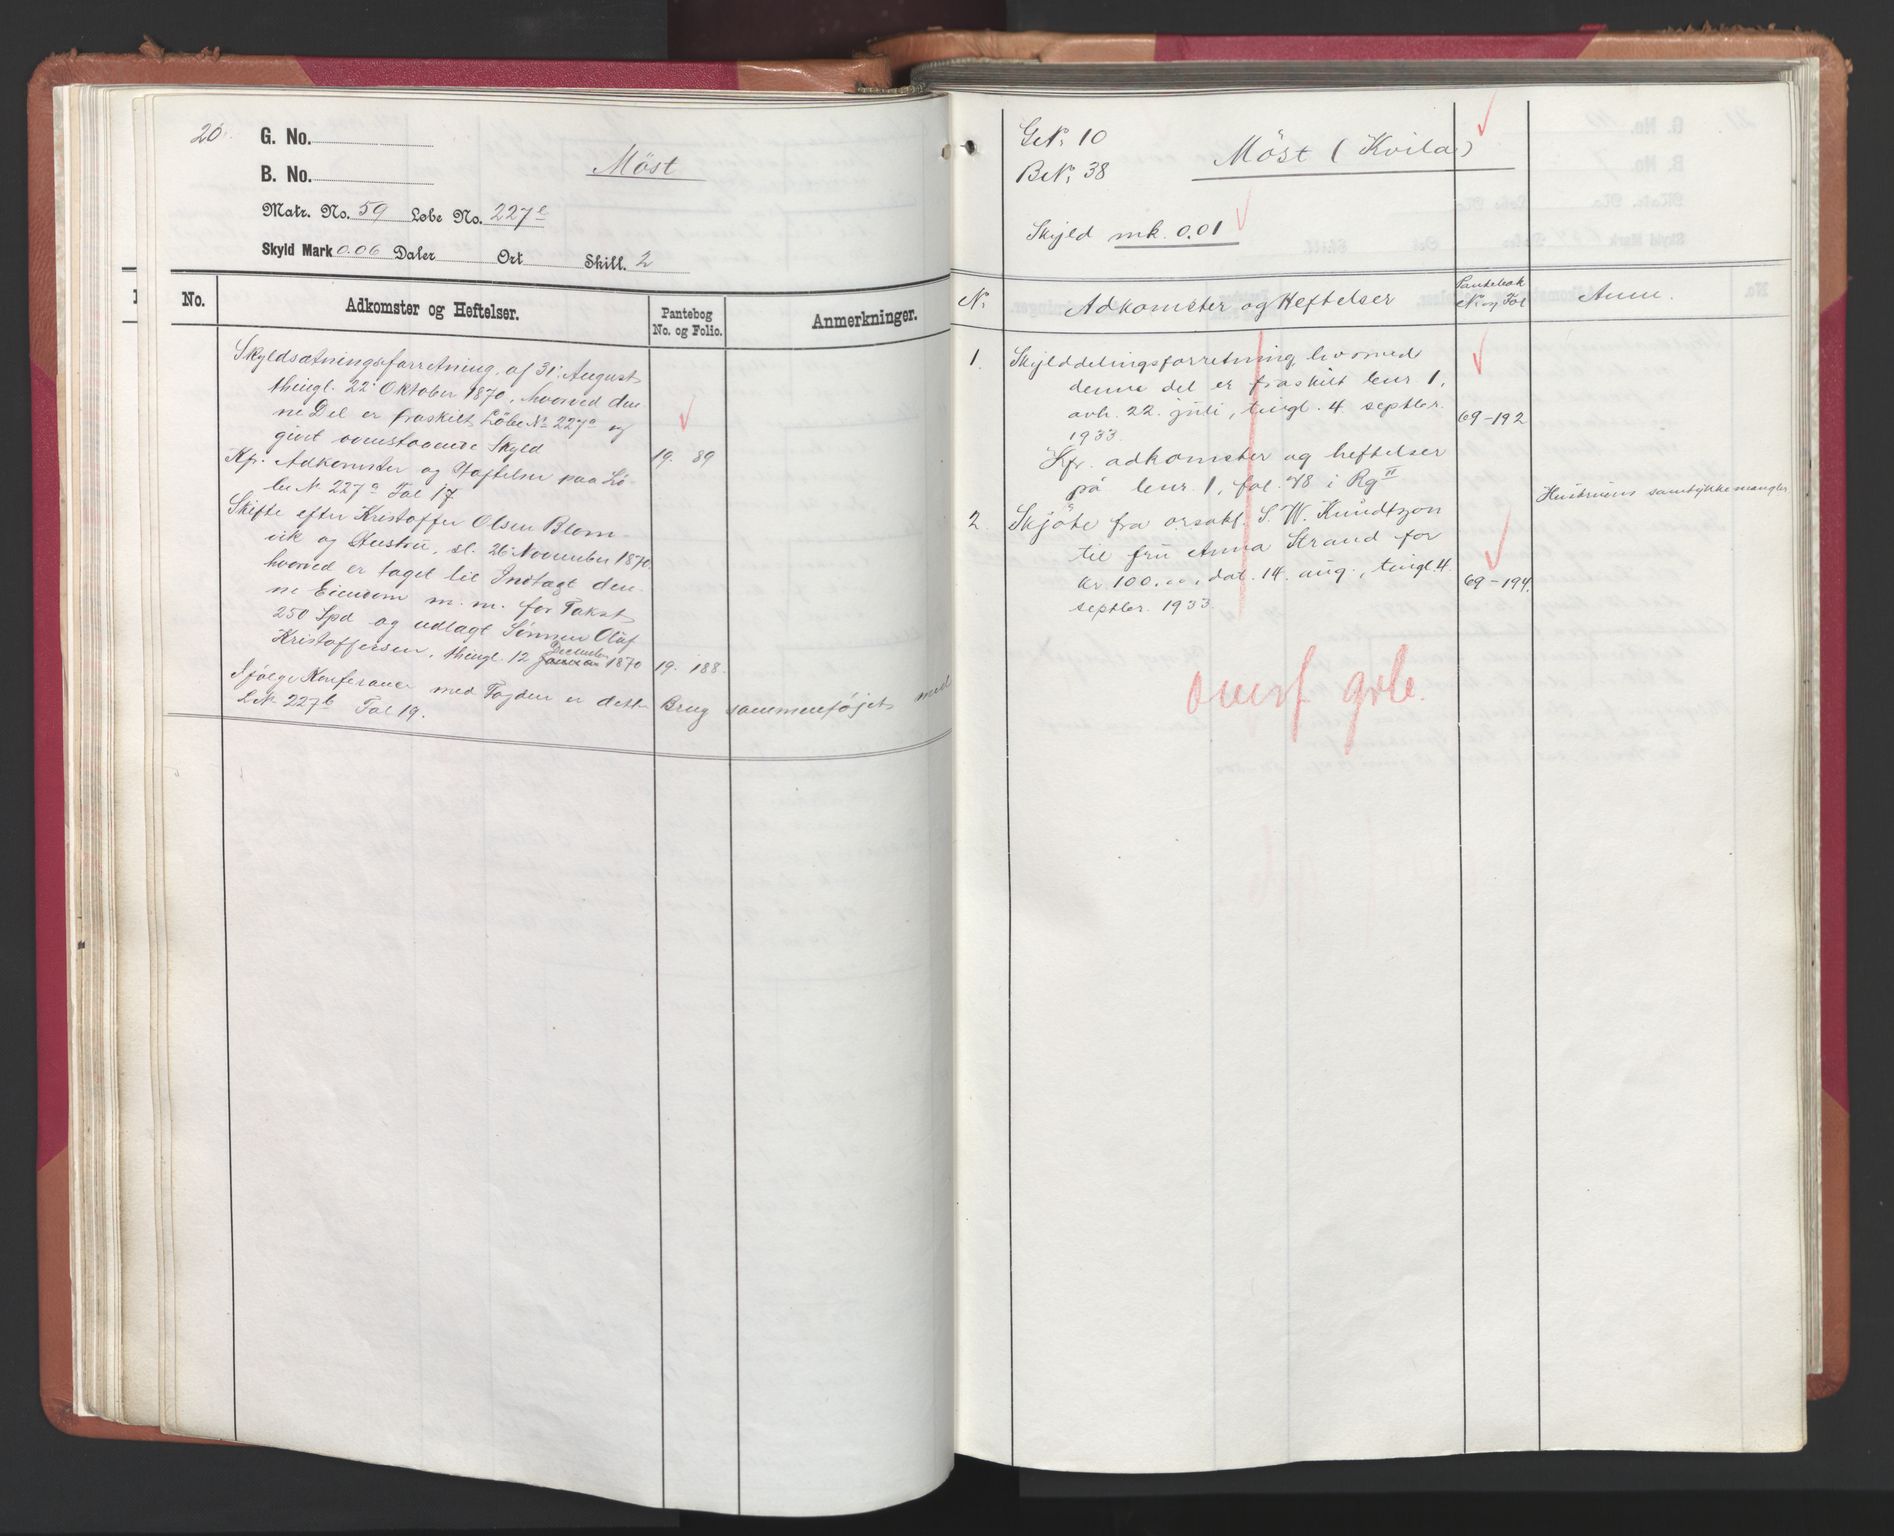 20.
G. No.
B. No.
Möst
Matr. No. 59 Løbe No. 227c
Skyld Mark 0.06 Daler Ort Skill. 2
No. Adkomster og Heftelser. Pantebog No. og Folio. Anmerkninger.
Skyldsætningsforretning, af 31: August
thingl. 22: Oktober 1870, hvorved den-
ne Del er fraskilt Löbe No 227a og
givet ovenstaaende Skyld 19. 89
Kfr: Adkomster og Heftelser paa Lö-
be N. 227a Fol 17
Skifte efter Kristoffer Olsen Blom-
vik og Hustru, sl. 26: November 1870
hvorved er taget til Indtægt den-
ne Eiendom m. m. for Takst
250 Spd og udlagt Sønnen Oluf
Kristoffersen, thingl. 12 Januar December 1870 19. 188.
Ifølge Konferance med Fogden er dette Brug sammenføjet med
L.N. 227b Fol 19.
G.N. 10
B.N. 38
Möst (Kvila)
Skyld mk. 0.01
N. Adkomster og Heftelser Pantebok N. og Fol Anm.
1. Skylddelingsforretning, hvorved
denne del er fraskilt bnr. 1,
avh. 22. juli, tingl. 4. septbr.
1933. 69-192
Kfr. adkomster og heftelser
på bnr. 1, fol. 48 i Rg II
Hustruens samtykke mangler
2. Skjöte fra orsakf. S. W. Knudtzon
til fru Anna Strand for
kr. 100.00, dat. 14. aug., tingl. 4.
septbr. 1933. 69-194.
overf grb.